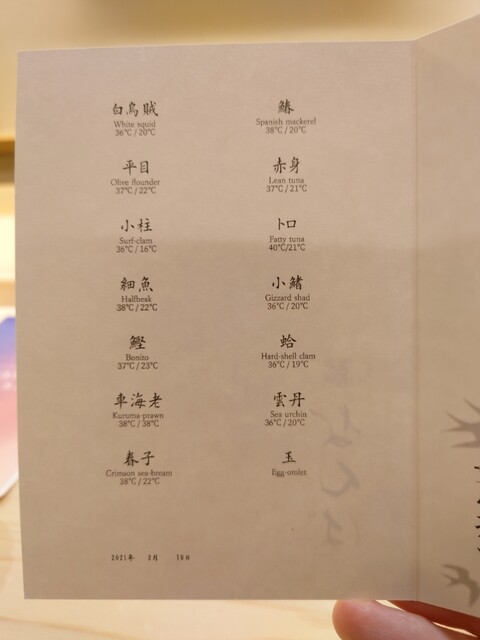 白烏賊
White squid
36℃ / 20℃
平目
Olive flounder
37℃ / 22℃
小柱
Surf-clam
36℃ / 16℃
細魚
Halfbeak
38℃ / 22℃
鰹
Bonito
37℃ / 23℃
車海老
Kuruma-prawn
38℃ / 38℃
春子
Crimson sea-bream
38℃ / 22℃
鰆
Spanish mackerel
38℃ / 20℃
赤身
Lean tuna
37℃ / 21℃
トロ
Fatty tuna
40℃/21℃
小鰭
Gizzard shad
36℃ / 20℃
蛤
Hard-shell clam
36℃ / 19℃
雲丹
Sea urchin
36℃ / 20℃
玉
Egg-omlet
2021年 3月 10日